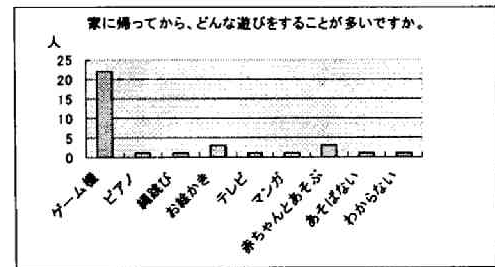 家に帰ってから、どんな遊びをすることが多いですか。
人
25
20
15
10
5
0
ゲーム機
ピアノ
縄跳び
お絵かき
テレビ
マンガ
赤ちゃんとあそぶ
あそばない
わからない